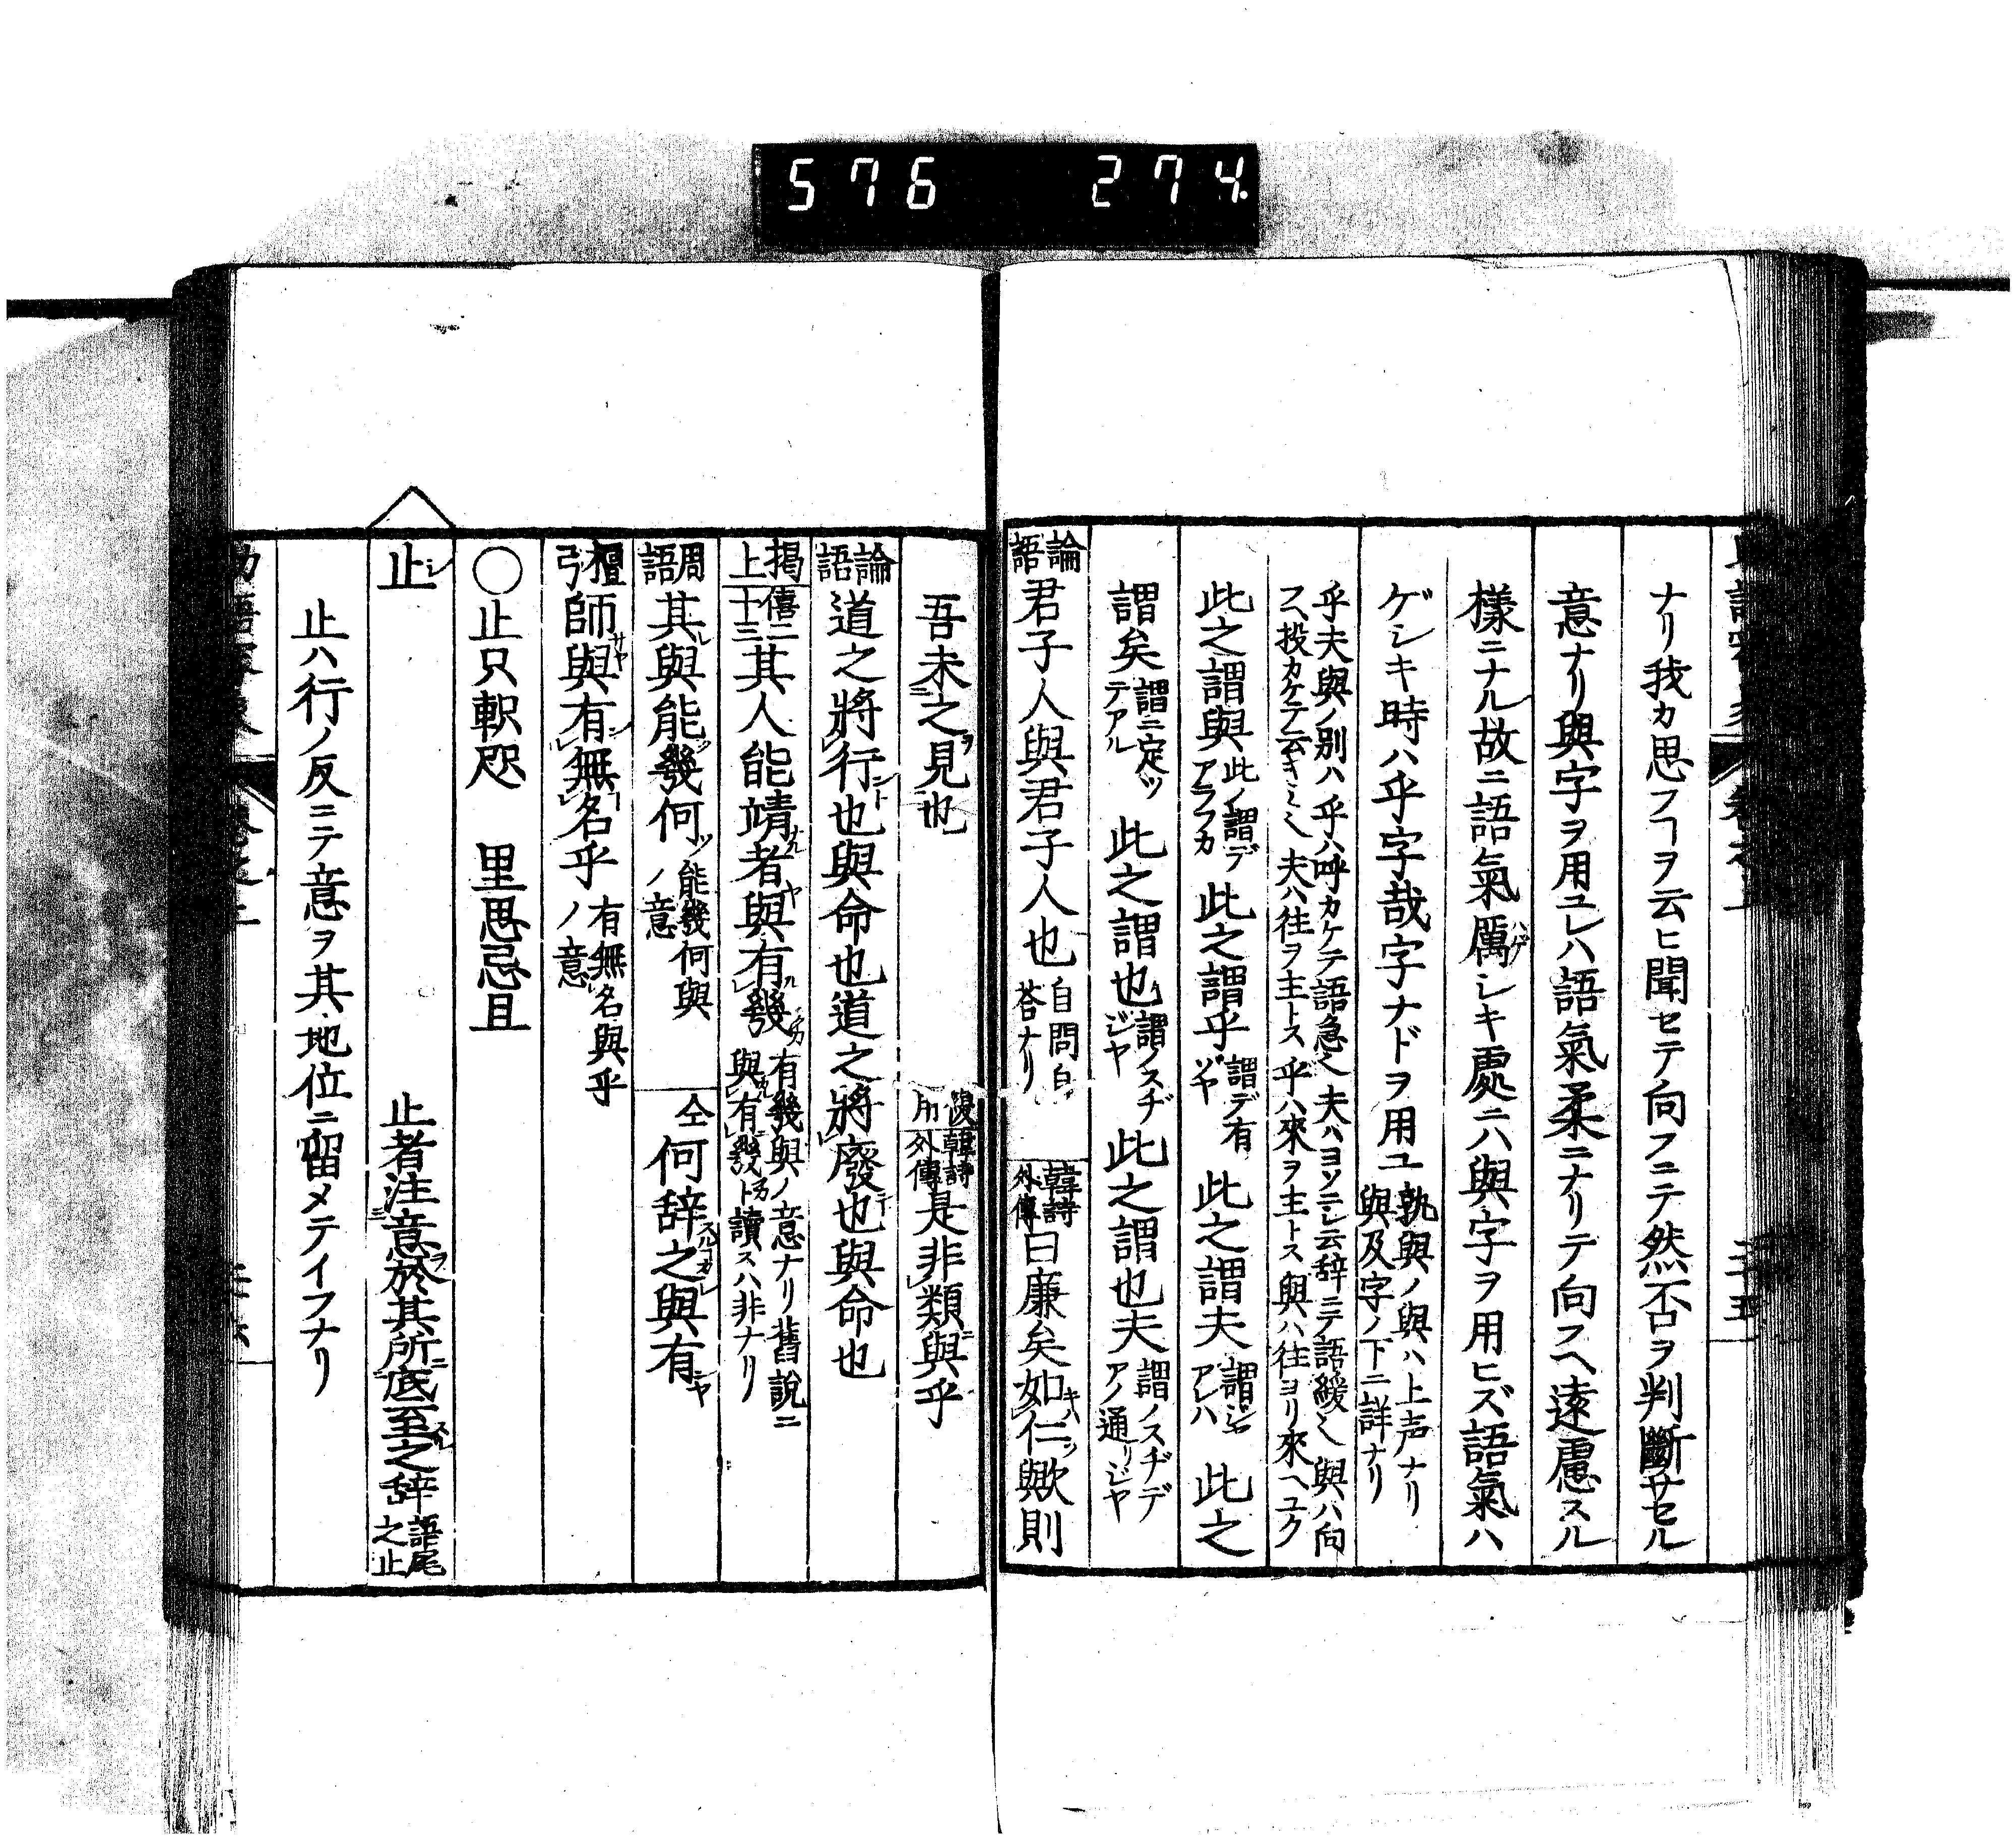 576 274
ナリ我カ思フヿヲ云ヒ聞セテ向フニテ然否ヲ判斷サセル
意ナリ與字ヲ用ユレハ語氣柔ニナリテ向フヘ遠慮スル
樣ニナル故ニ語氣厲シキ處ニハ與字ヲ用ヒズ語氣ハ
ゲシキ時ハ乎字哉字ナドヲ用ユ
孰與ノ與ハ上声ナリ
與及字ノ下ニ詳ナリ
乎夫與ノ別ハ乎ハ呼カケテ語急
夫ハヨソニシ云辞ニテ語緩
與ハ向
フヘ投カケテ云
夫ハ往ヲ主トス乎ハ來ヲ主トス與ハ往ヨリ來ヘユク
此之謂與
此ノ謂デ
アラフカ
此之謂乎
謂デ有
ジヤ
此之謂夫
謂ジヤ
アレハ
此之
謂矣
謂ニ定ツ
テアル
此之謂也
謂ノスヂ
ジヤ
此之謂也夫
謂ノスヂデ
アノ通リジヤ
論語
君子人與君子人也
自問自
荅ナリ
韓詩外傳
曰廉矣如仁歟則
吾未之見也
韓詩外傳
是非類與乎
論語
道之將行也與命也道之將廢也與命也
揭上
僖二十三
其人能靖者與有幾
有幾與ノ意ナリ舊說ニ
與有幾ト讀スハ非ナリ
周語
其與能幾何
能幾何與
ノ意
仝
何辞之與有
檀弓
師與有無名乎
有無名與乎
ノ意
〇止只軹咫 里思忌且
止
止者注意於其所底至之辞
語尾
之止
止ハ行ノ反ニテ意ヲ其地位ニ留メテイフナリ